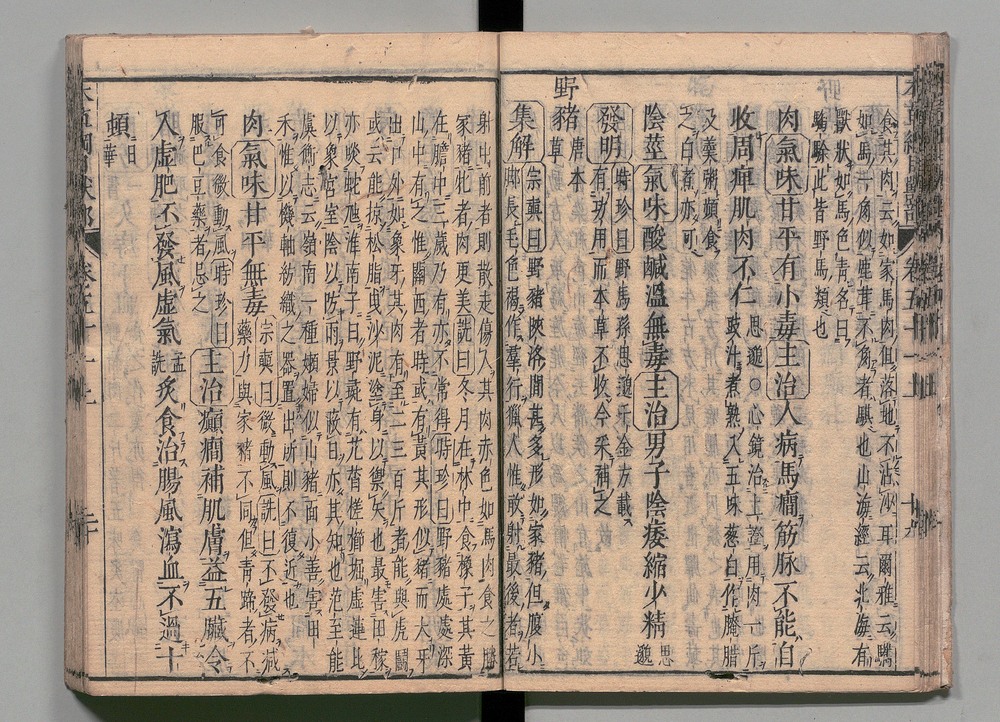 食其肉云如家馬肉但落地不沾沙耳爾雅云驨
如馬一角似鹿茸不角者騏也山海經云北海有
獸狀如馬色青名曰
騊駼此皆野馬類也
肉氣味甘平有小毒主治人病馬癎筋脉不能自
收周痺肌肉不仁思邈○心鏡治上證用肉一斤
豉汁煮熟入五味葱白作腌腊
及羹粥頻食
之白煮亦可
陰莖氣味酸鹹溫無毒主治男子陰痿縮少精思邈
發明時珍曰野馬孫思邈千金方載
有功用而本草不收今采補之
野豬唐本草
集解宗奭曰野豬陝洛間甚多形如家豬但腹小
脚長毛色褐作羣行獵人惟敢射最後者若
射出前者則散走傷人其肉赤色如馬肉食之勝
家豬牝者肉更美詵曰冬月在林中食橡子其黃
在膽中三歲乃有亦不常得時珍曰野豬處處深
山中有之惟關西者時或有黃其形似豬而大牙
出口外如象牙其肉有至二三百斤者能與虎鬭
或云能掠松脂曳沙泥塗身以禦矢也最害田稼
亦啖蛇虺淮南子曰野彘有艽莦槎櫛堀虛連比
以象宮室陰以防雨景以蔽日亦其知也范至能
虞衡志云嶺南一種嬾婦似山豬而小善害田
禾惟以機軸紡織之器置田所則不復近也
肉氣味甘平無毒宗奭曰微動風詵曰不發病減
藥力與家豬不同但青蹄者不
可食微動風時珍曰
服巴豆藥者忌之
主治癲癎補肌膚益五臟令
人虛肥不發風虛氣孟詵炙食治腸風瀉血不過十
頓日華